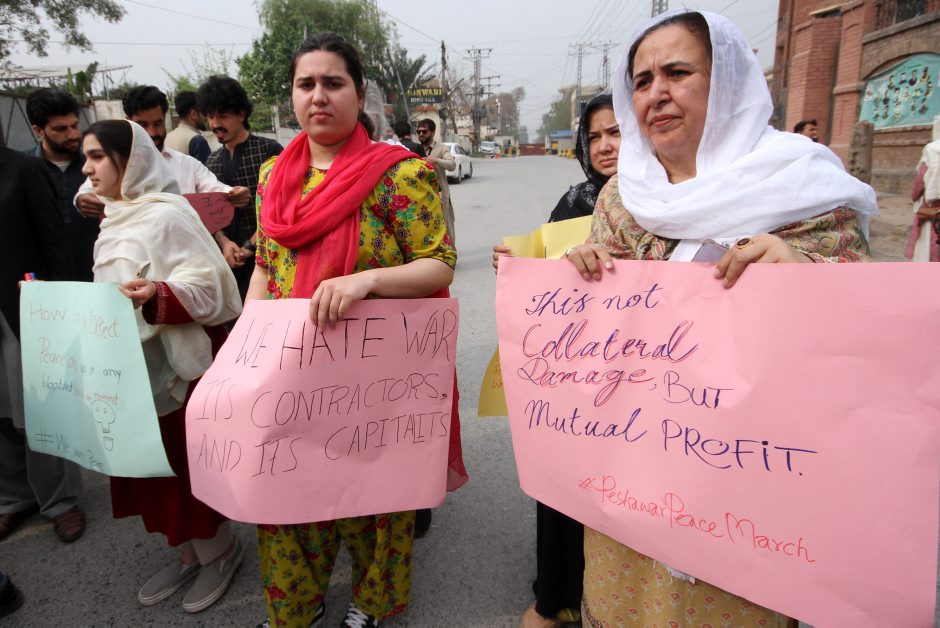 How
Peace
any
#We
WE HATE WAR
ITS CONTRACTORS.
AND ITS CAPITALITS
This not
Collateral
Damage, But
Mutual PROFIT.
#PeshawarPeaceMarch